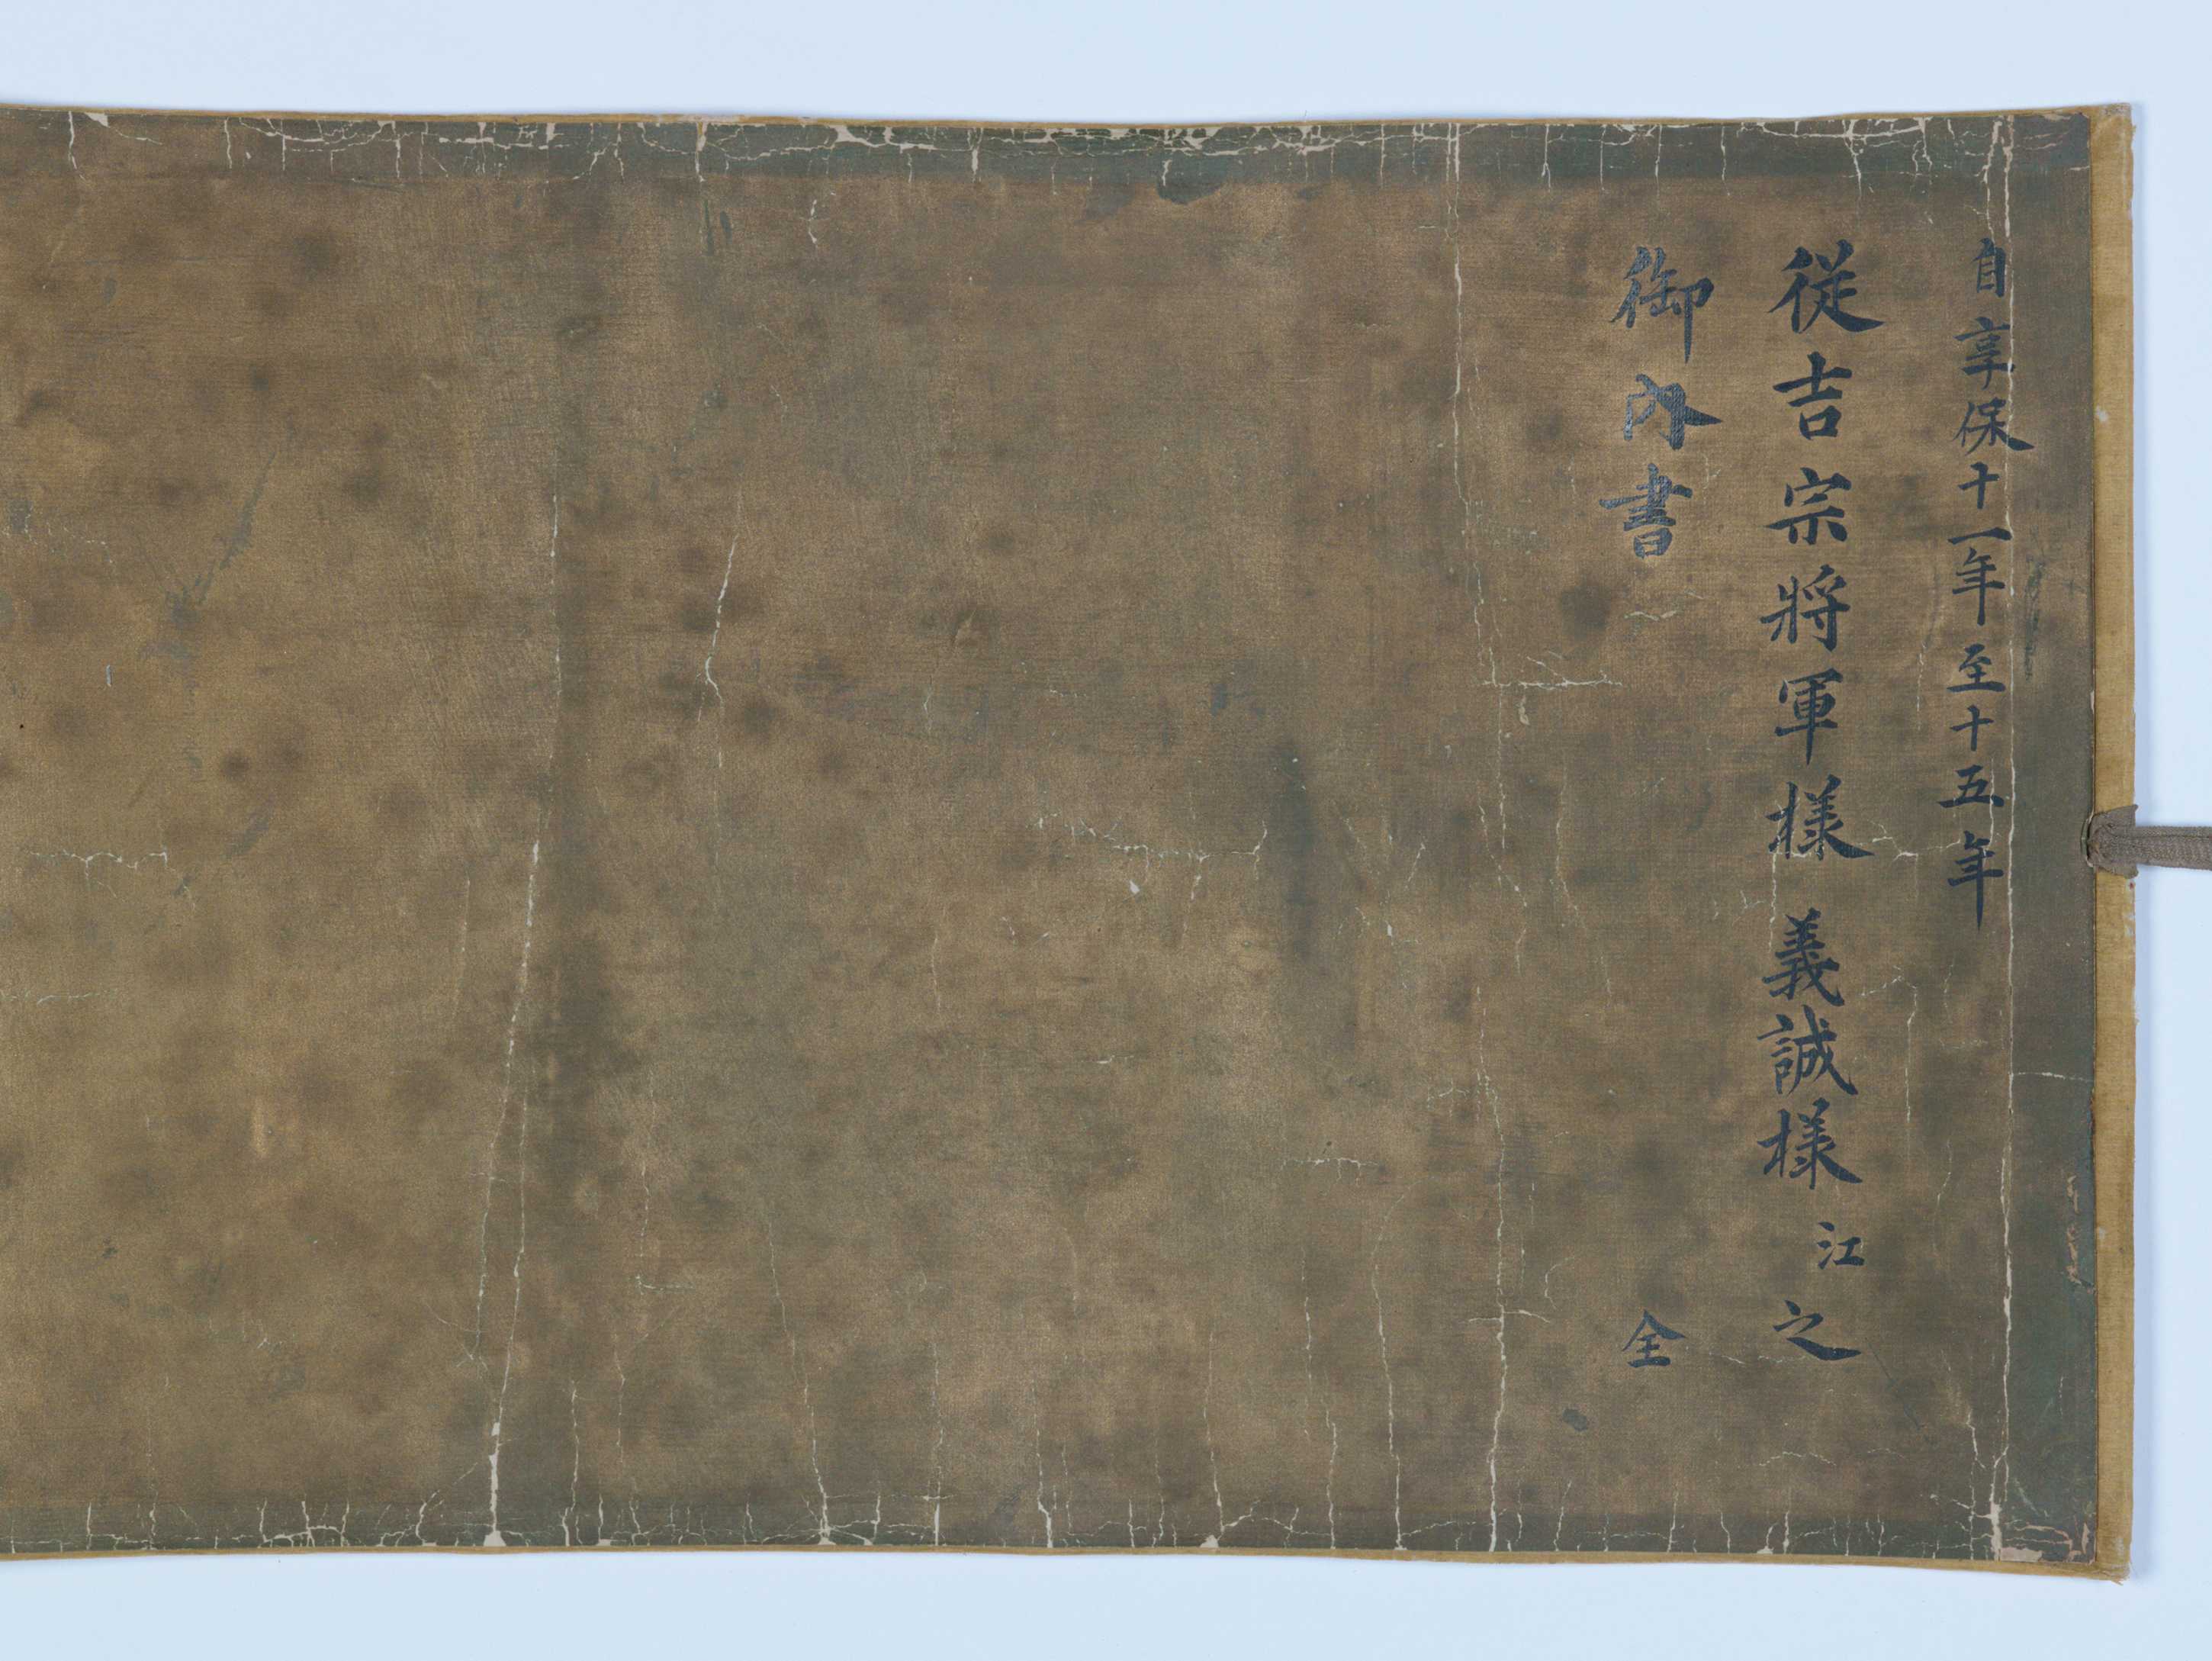 自享保十一年至十五年
從吉宗將軍様義誠様江之
御内書 全